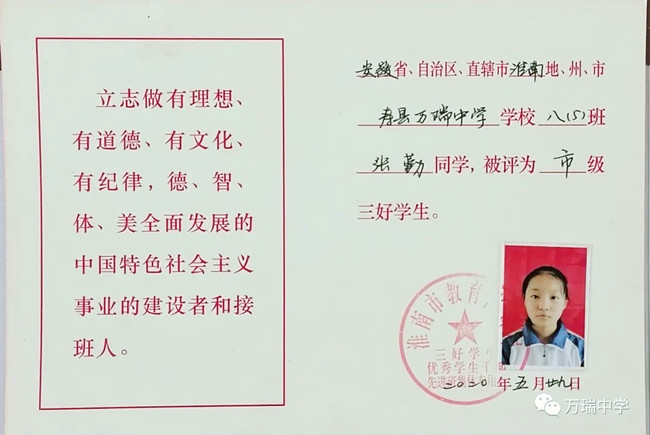 立志做有理想、
有道德、有文化、
有纪律，德、智、
体、美全面发展的
中国特色社会主义
事业的建设者和接
班人。
安徽省、自治区、直辖市淮南地、州、市
寿县万瑞中学学校八(5)班
张勤同学，被评为市级
三好学生。
淮南市教育
三好学生
优秀学生干部
2020年五月廿九日
万瑞中学